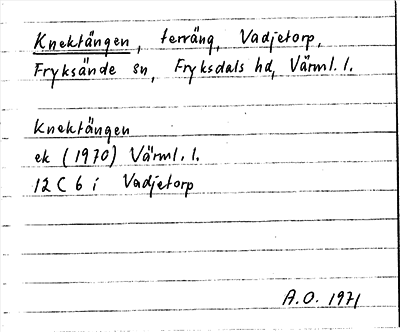 Knektängen, terräng, Vadjetorp,
Fryksände sn, Fryksdals hd, Värml. l.
Knektängen
ek (1970) Värml. l.
12 C 6 i Vadjetorp
A.O. 1971